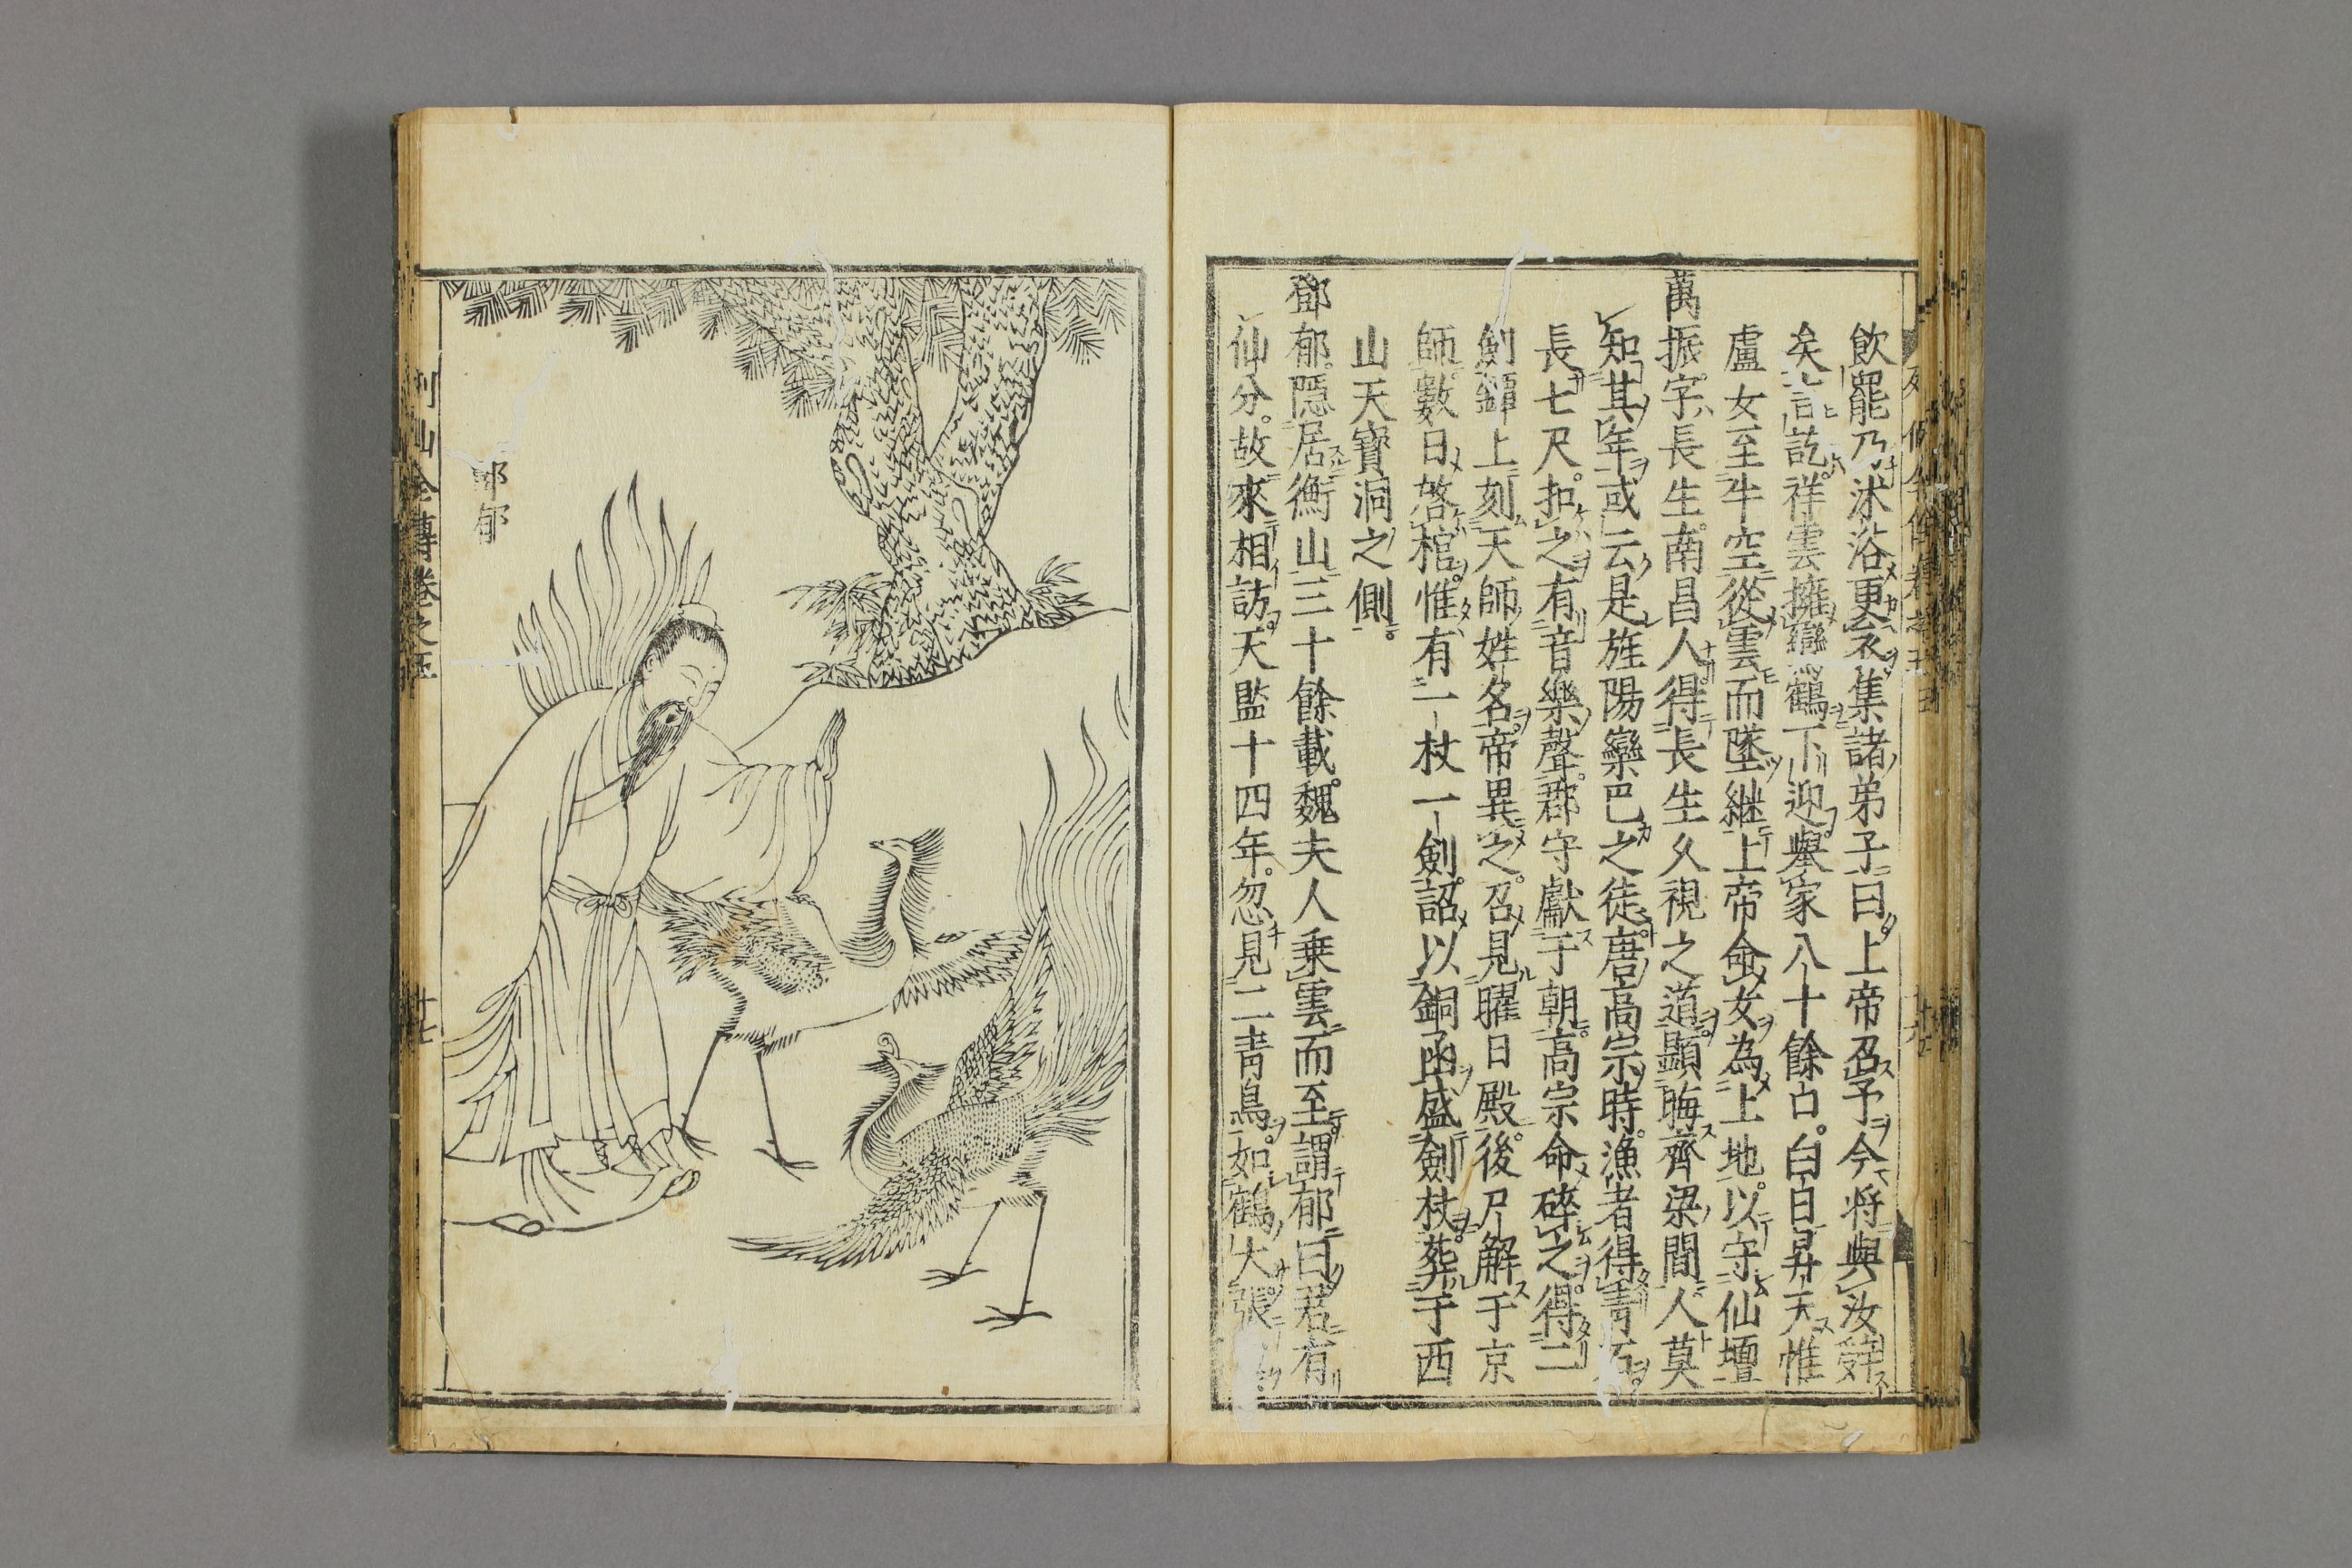 飲罷乃沐浴更衣集諸弟子曰上帝召予今将與汝辞
矣言訖祥雲擁鸞鶴下迎舉家八十餘口白日昇天惟
盧女至牛空從雲而墜継上帝命女為上地以守仙壇
萬振字長生南昌人得長生久視之道顯晦齊梁間人莫
知其年或云是旌陽欒巴之徒唐高宗時漁者得青石
長七尺扣之有音樂聲郡守獻于朝高宗命碎之得二
劍鐔上刻天師姓名帝異之召見曜日殿後尸解于京
師數日啓棺惟有一杖一劍詔以銅函盛劍杖葬于西
山天寶洞之側
鄧郁隱居衡山三十餘載魏夫人乗雲而至謂郁曰君有
仙分故來相訪天監十四年忽見二青鳥如鶴大張
鄧郁
列仙全傳卷之五
十七